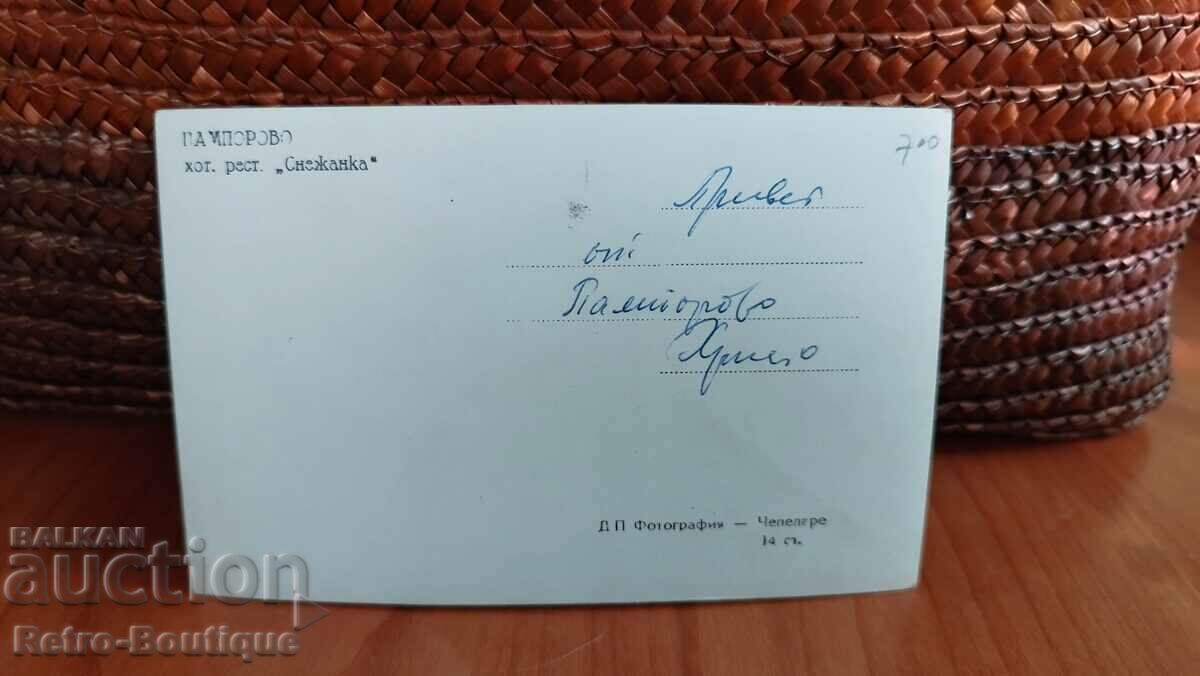 ПАМПОРОВО
хот. рест. „Снежанка"
700
Привет
от
Пампорово
Христо
ДП Фотография — Чепеларе
14 ст.
BALKAN
auction
Retro-Boutique